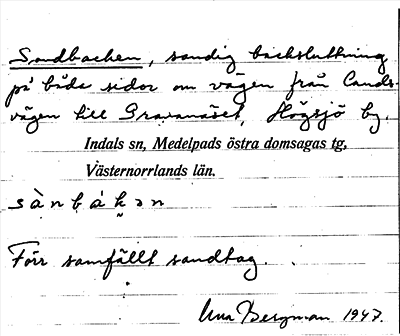 Sandbacken, sandig backsluttning
på båda sidor om vägen från Lands-
vägen till Gravanäset, Högsjö by.
Indals sn, Medelpads östra domsagas tg,
Västernorrlands län.
sànbákən
Förr samfällt sandtag.
Una Bergman 1947.